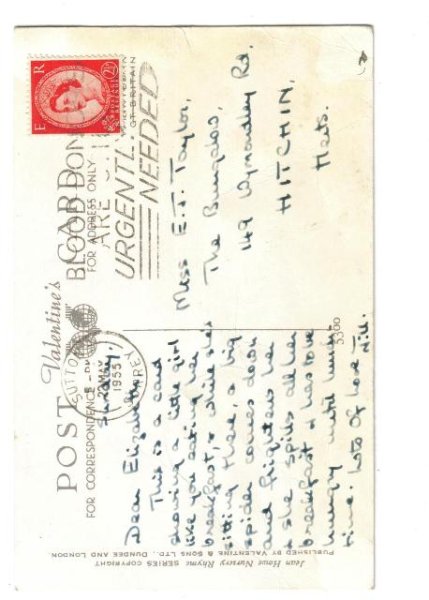 POST CARD
Valentine's
FOR CORRESPONDENCE
FOR ADDRESS ONLY
E R
2½D
BLOOD DON
ARE
URGENTLY
NEEDED
GT BRITAIN
SUTTON
MAY
1955
SURREY
Sunday.
Dear Elizabeth,
This is a card
showing a little girl
like you eating her
breakfast, & while she's
sitting there, a big
spider comes down
and frightens her
& she spills all her
breakfast & has to be
hungry until lunch-
time. Lots of love –
Miss E. J. Taylor,
The Bungalow,
149 Wymondley Rd,
HITCHIN,
Herts.
5300
Jean Howe Nursery Rhyme SERIES COPYRIGHT
PUBLISHED BY VALENTINE & SONS LTD., DUNDEE AND LONDON